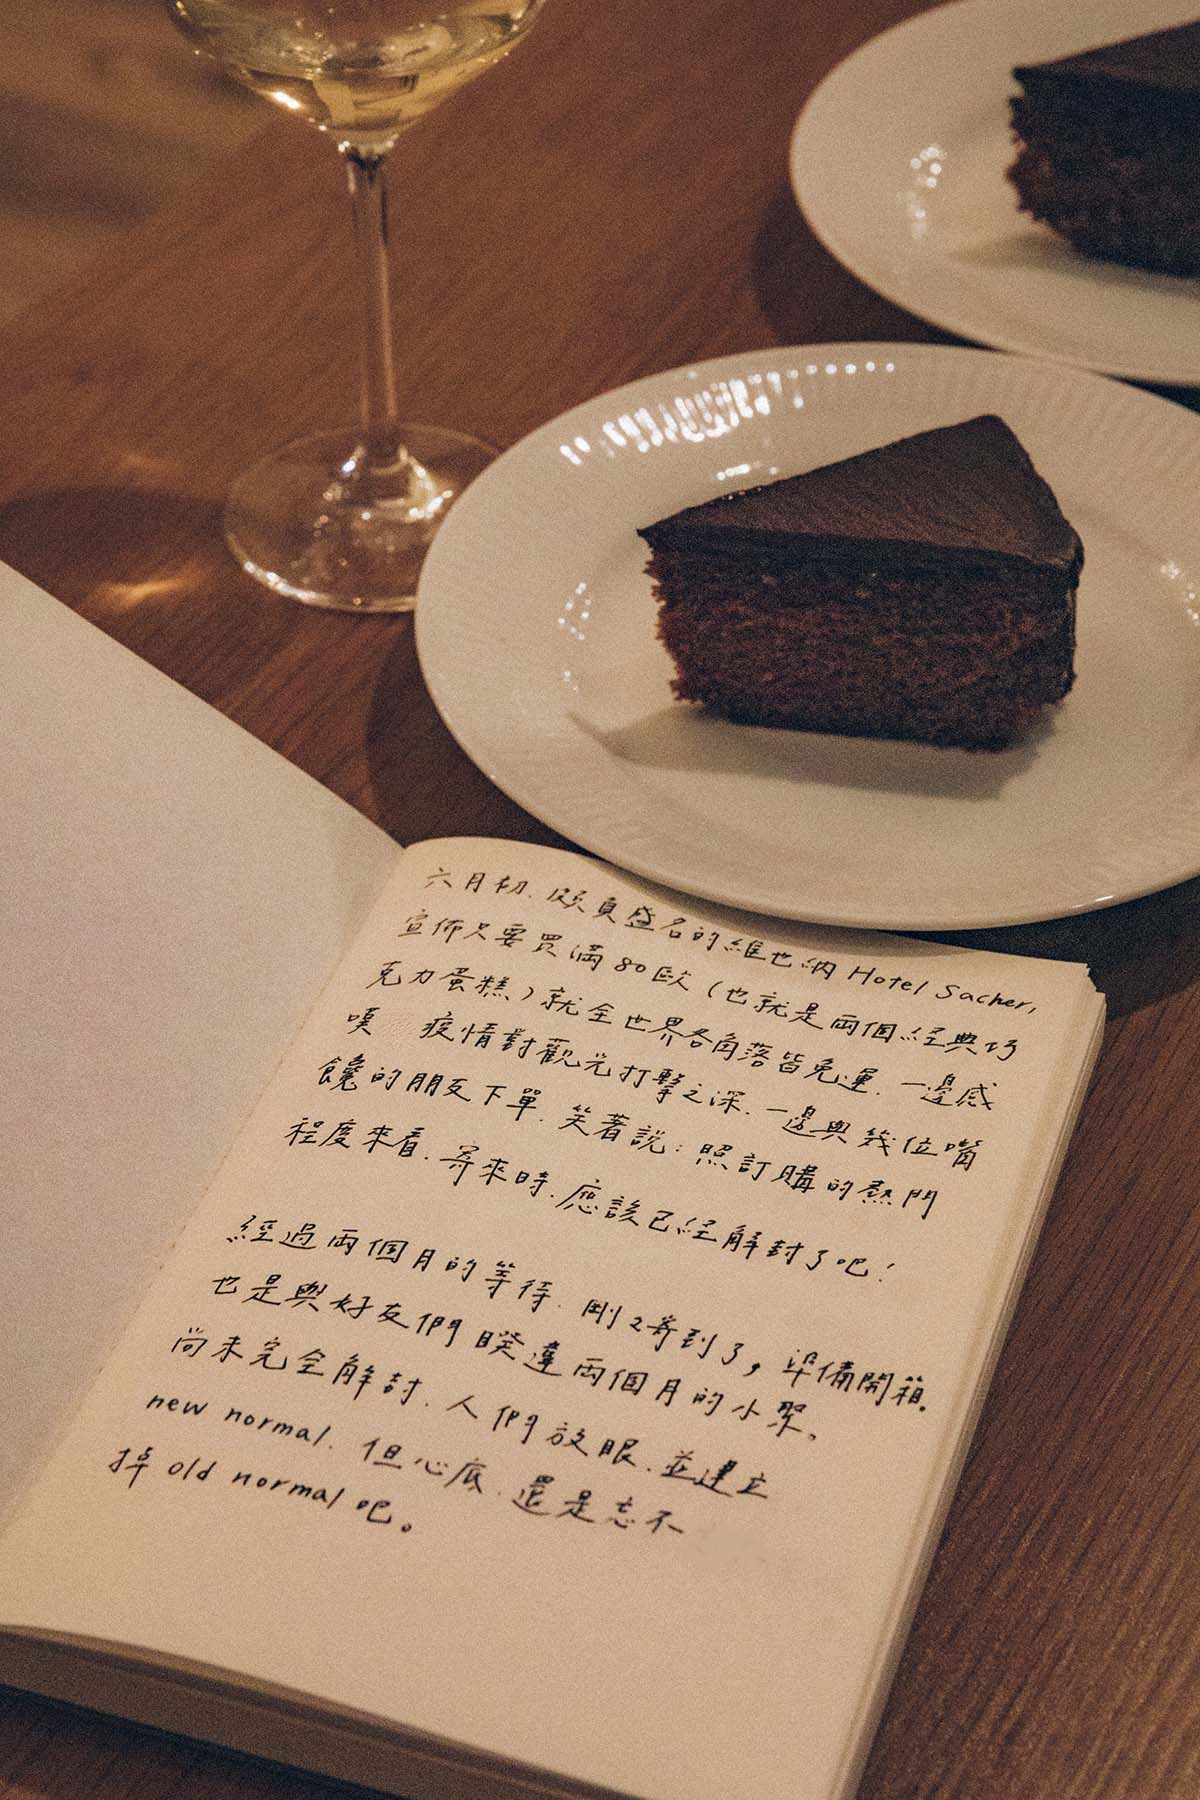 六月初、頗負盛名的維也納 Hotel Sacher,
宣佈只要買滿80歐(也就是兩個經典巧
克力蛋糕)就全世界各角落皆免運、一邊感
嘆 疫情對觀光打擊之深、一邊與幾位嘴
饞的朋友下單、笑著說:照訂購的熱門
程度來看、寄來時、應該已經解封了吧!
經過兩個月的等待、剛2寄到了,準備開箱。
也是與好友們睽違兩個月的小聚。
尚未完全解封、人們放眼、並建立
new normal、但心底、還是忘不
掉 old normal 吧。